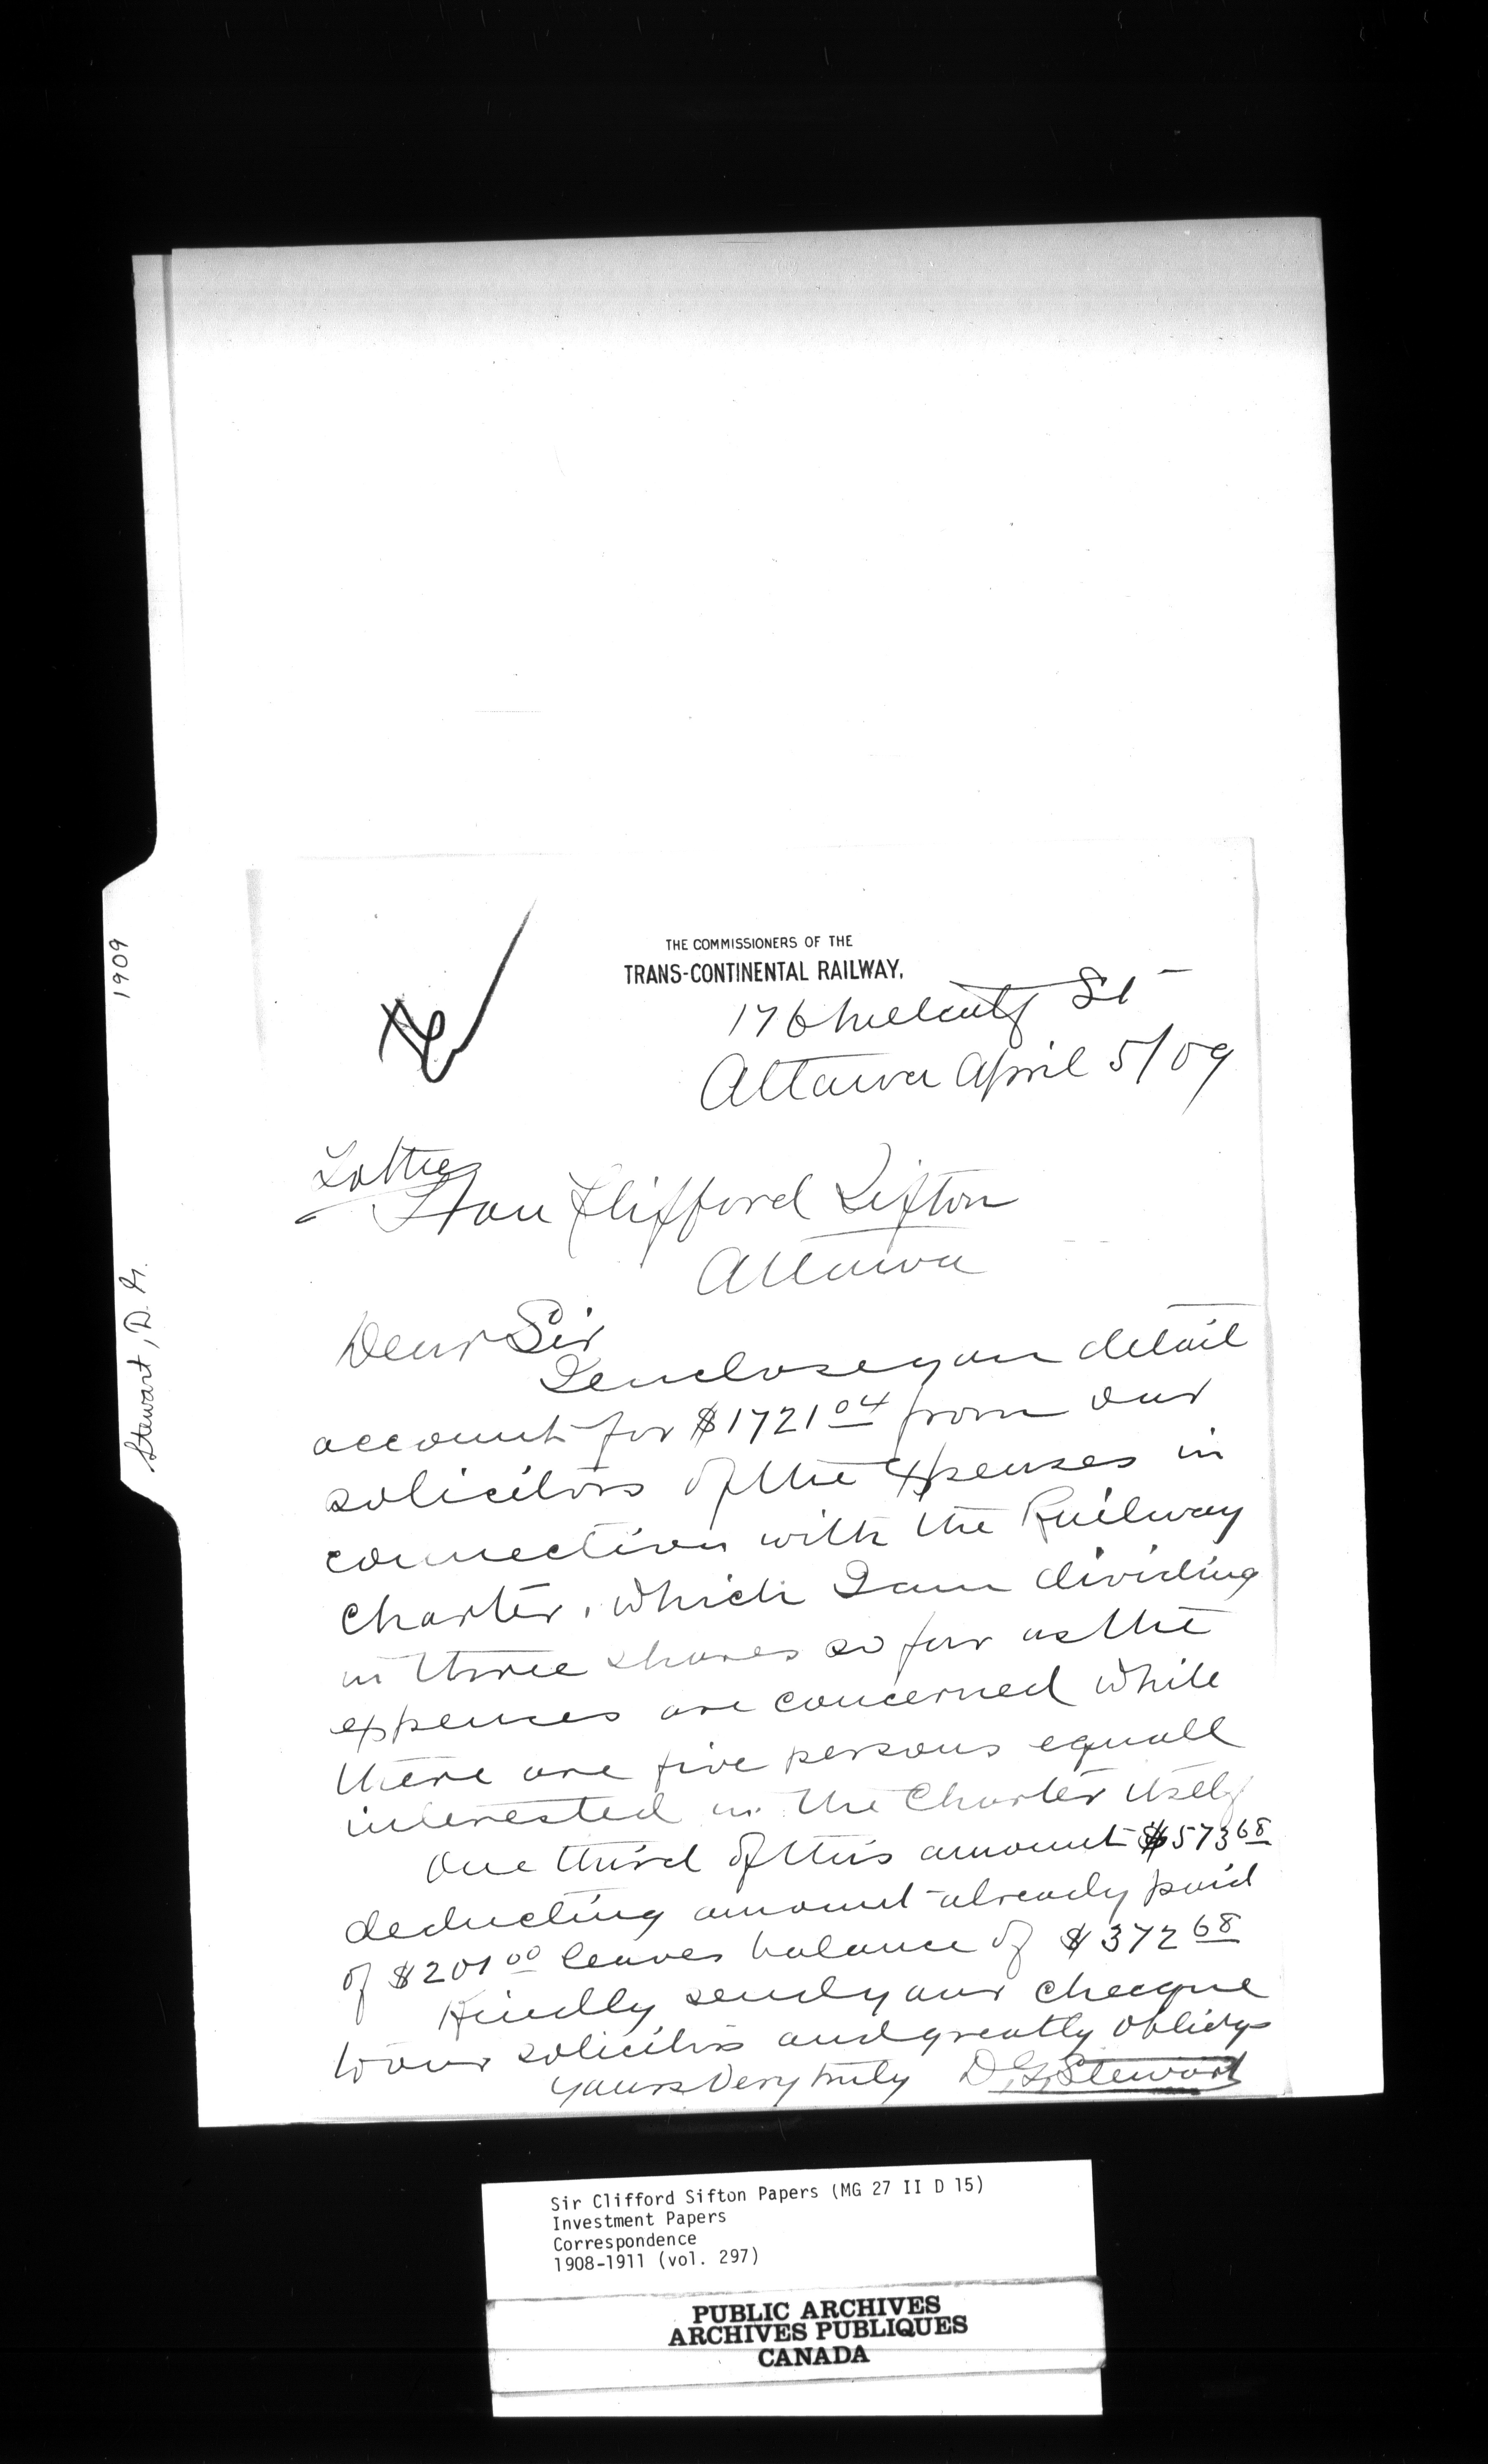 1909
Stewart, D. G.
THE COMMISSIONERS OF THE
TRANS-CONTINENTAL RAILWAY.
176 Metcalf St
Ottawa April 5/09
Hon Clifford Sifton
Ottawa
Dear Sir
I enclose you detail
account for $1721 04 from our
solicitors of the expenses in
connection with the Railway
Charter, which I am dividing
in three shares so far as the
expenses are concerned while
there are five persons equall
interested in the Charter itself
One third of this amount $573 68
deducting amount already paid
of $201 00 leaves balance of $372 68
Kindly send your cheque
to our solicitors and greatly oblidge
yours Very truly D. G. Stewart
Sir Clifford Sifton Papers (MG 27 II D 15)
Investment Papers
Correspondence
1908-1911 (vol. 297)
PUBLIC ARCHIVES
ARCHIVES PUBLIQUES
CANADA